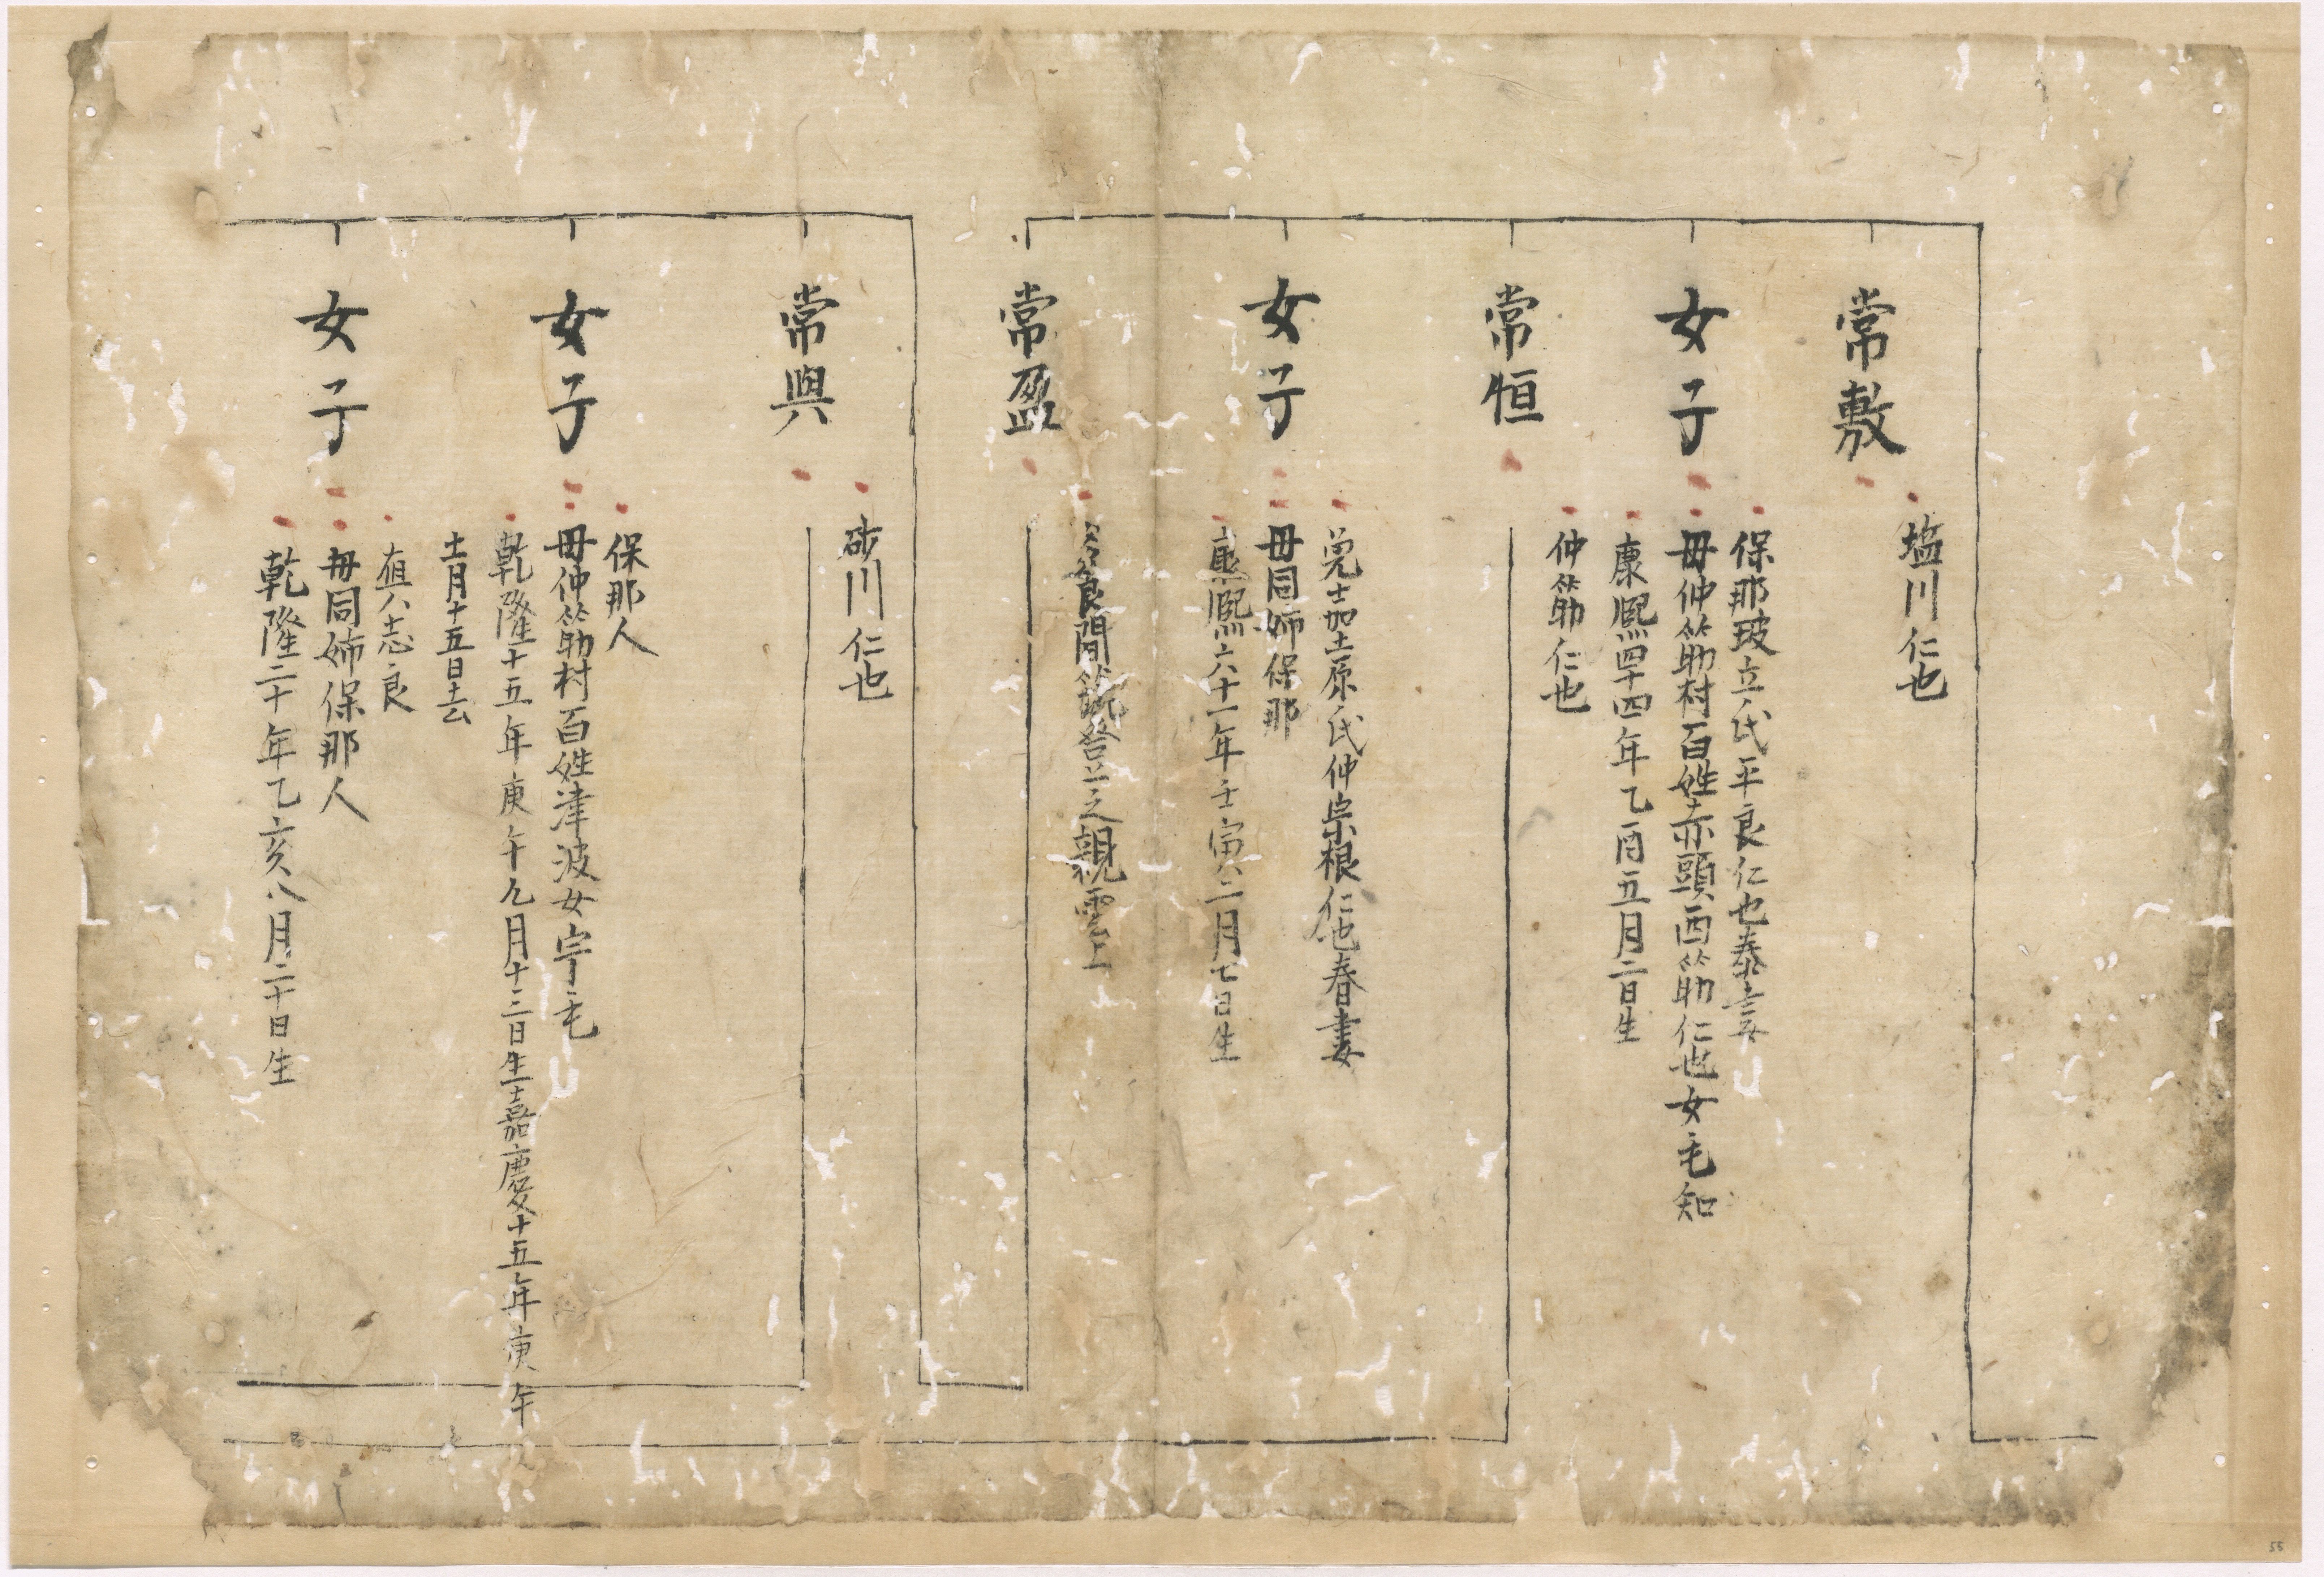 塩川仁也
常敷
保那玻立氏平良仁也泰言妻
女子
母仲筋村百姓赤頭西筋仁也女毛知
康熙四十四年乙酉五月二日生
仲筋仁也
常恒
兼士加土原氏仲宗根仁也春妻
女子
母同姉保那
康熙六十一年壬寅八二月七日生
良間 登之親雲上
常盈
砂川仁也
常興
保那人
女子
母仲筋村百姓津波女宇毛
乾隆十五年庚午九月十三日生嘉慶十五年庚午
十一月十五日去
真八志良
女子
母同姉保那人
乾隆二十年乙亥八月二十日生
55